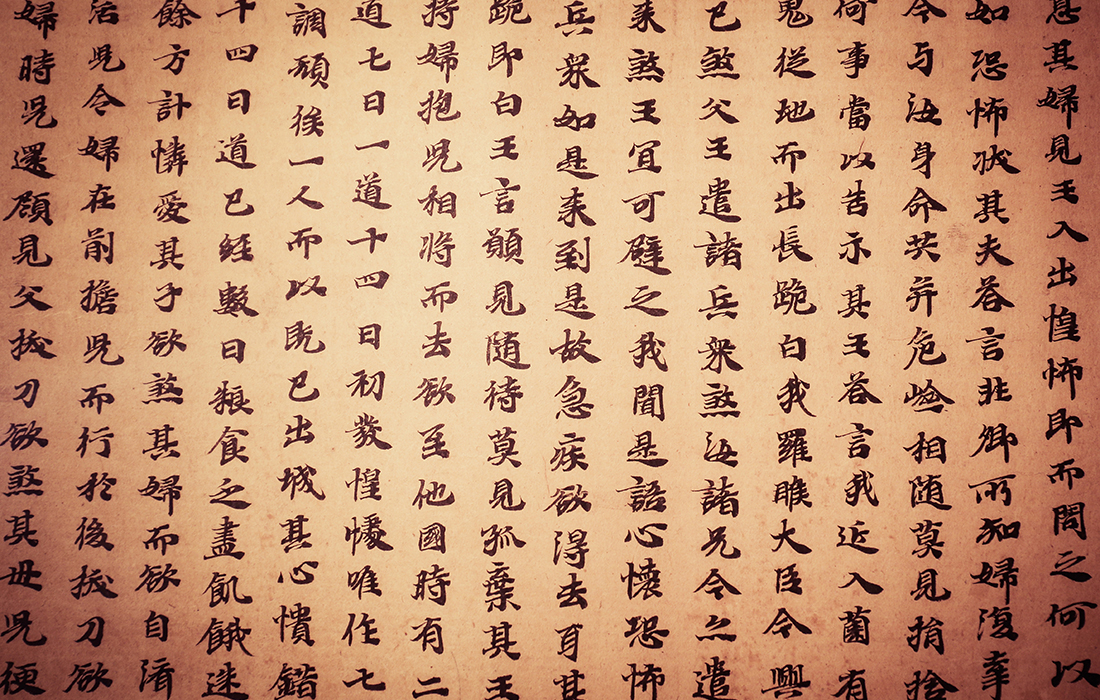 息其婦見王入出惶怖即而問之何以
如恐怖状其夫答言非卿所知婦復
今与汝身命共并危嶮相随莫見捐捨
何事當以告示其王答言我近入薗有
鬼從地而出長跪白我羅睺大臣今興
已煞父王遣諸兵衆煞汝諸兄今亦遣
来煞王宜可避之我聞是語心懷恐怖
兵衆如是来到是故急疾欲得去耳其
跪即白王言願見随待莫見孤棄其王
持婦抱児相将而去欲至他國時有二
道七日一道十四日初發惶懅唯作七
調頋後一人而以既已出城其心憒錯
十四日道已經數日粮食之盡飢餓迷
餘方計憐愛其子欲煞其婦而欲自済
活児令婦在前擔児而行於後拔刀欲
婦時児還頋見父拔刀欲煞其母児